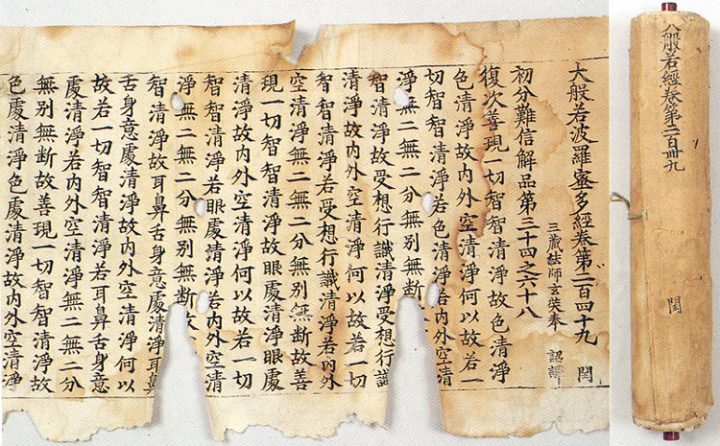 大般若波羅蜜多經卷第二百四十九 閏
初分難信解品第三十四之六十八
三藏法師玄奘奉 詔譯
復次善現一切智智清淨故色清淨
色清淨故內外空清淨何以故若一
切智智清淨若色清淨若內外空清
淨無二無二分無別無斷
智清淨故受想行識清淨受想行識
清淨故內外空清淨何以故若一切
智智清淨若受想行識清淨若內外
空清淨無二無二分無別無斷故善
現一切智智清淨故眼處清淨眼處
清淨故內外空清淨何以故若一切
智智清淨若眼處清淨若內外空清
淨無二無二分無別無斷
智清淨故耳鼻舌身意處清淨耳鼻
舌身意處清淨故內外空清淨何以
故若一切智智清淨若耳鼻舌身意
處清淨若內外空清淨無二無二分
無別無斷故善現一切智智清淨故
色處清淨色處清淨故內外空清淨
般若經卷第二百卌九
閏